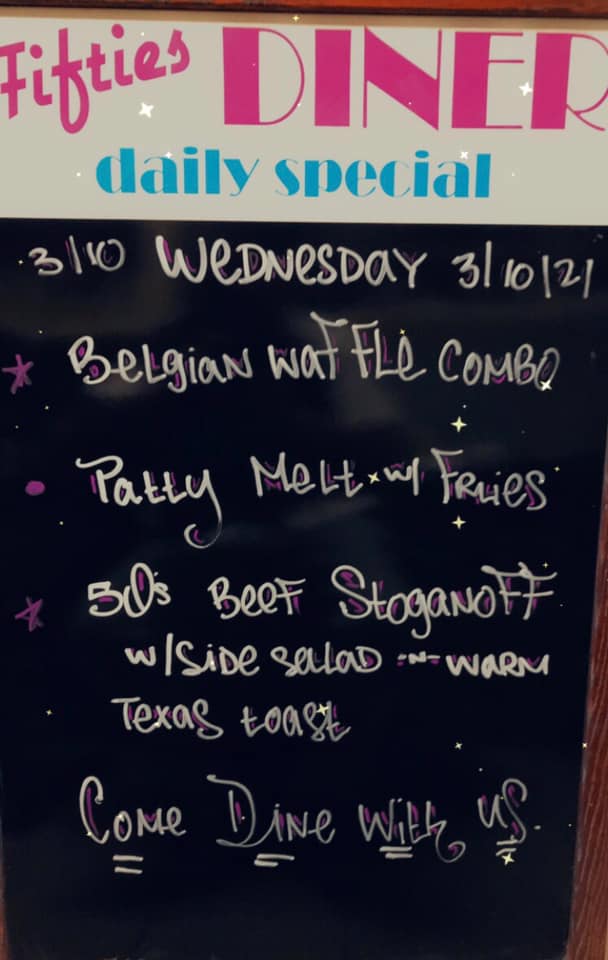 Fifties DINER
daily special
3/10 WEDNESDAY 3/10/21
* BELgiAN WAFFLE COMBO
• Patty MELT w/ FRIES
* 50's BEEF StoganoFF
w/SiDE SALAD -N- WARM
TEXAS tOASt
COME DINE WITH US.